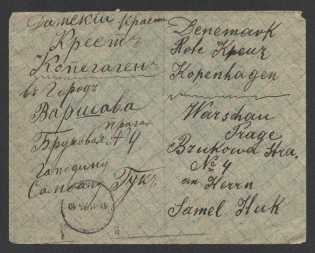 Датскій Красн
Крестъ
Копегагенъ
въ Городъ
Варшава
Прага
Бруковая № 4
Господину
Гукъ
Denemark
Rote Kreuz
Kopenhagen
Warschau
Prage
Brukowa Stra.
№ 4
an Herrn
Samel Huk